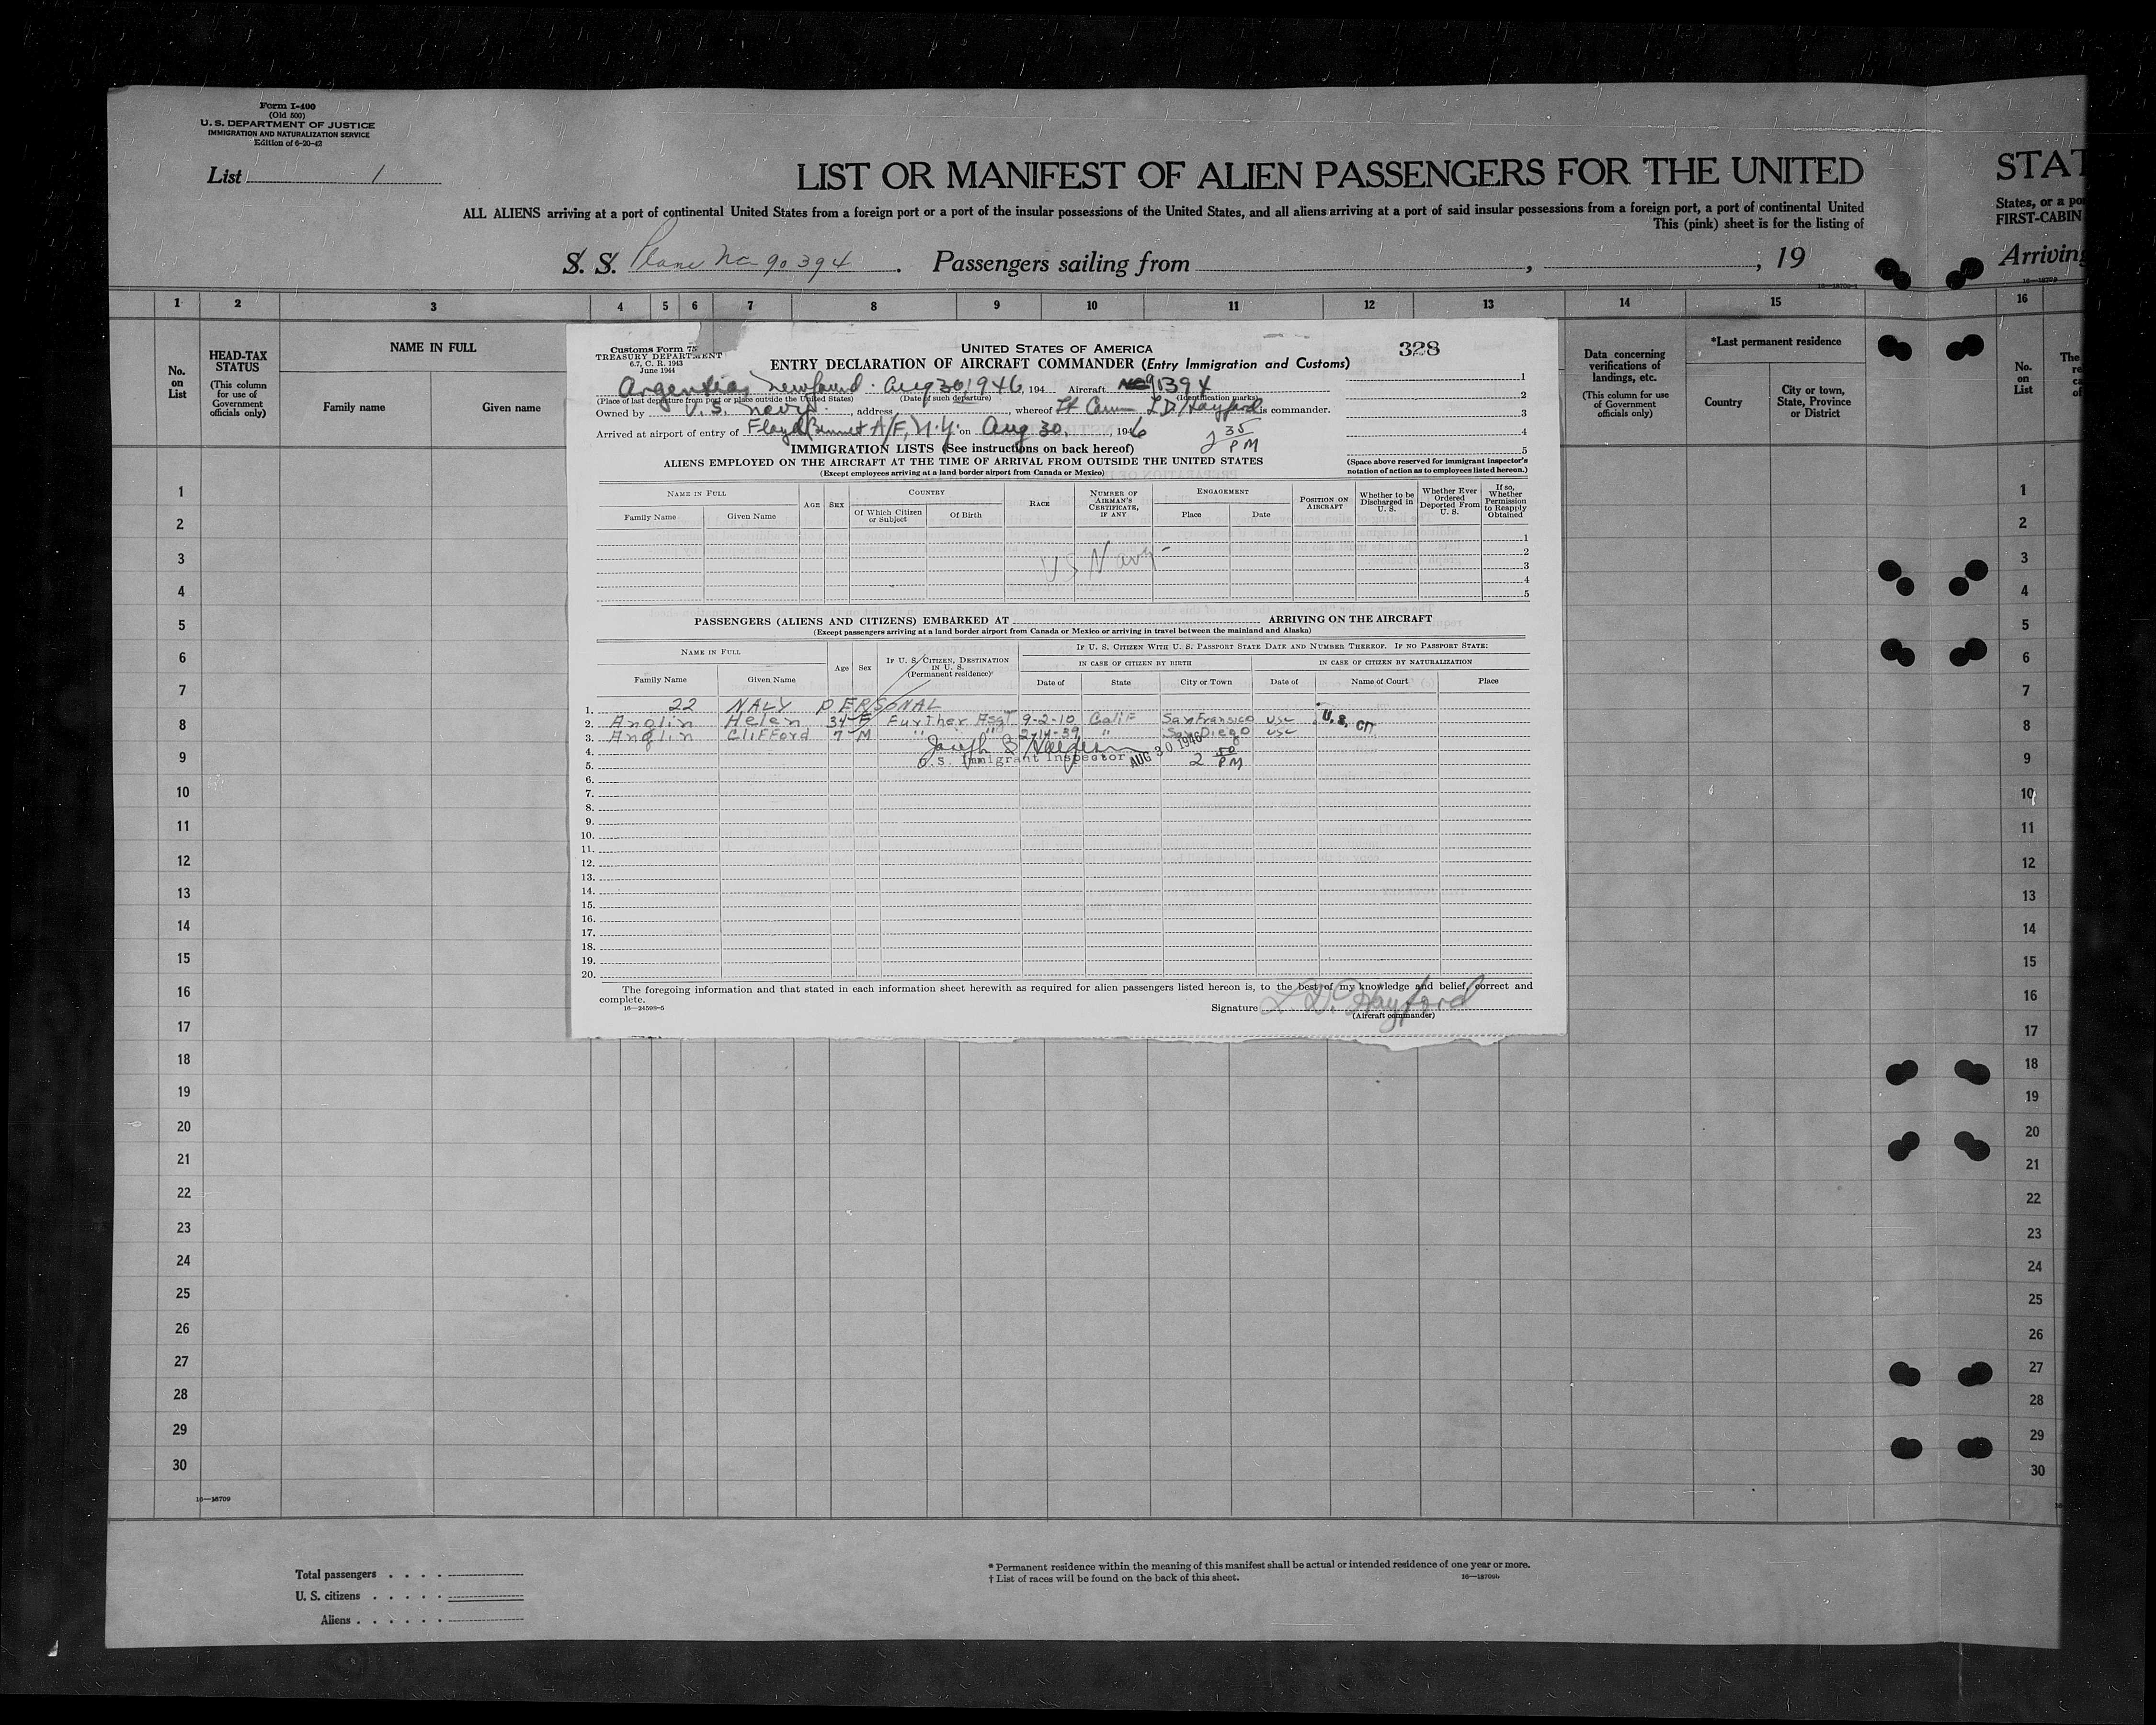 Form I-400
(Old 500)
U. S. DEPARTMENT OF JUSTICE
IMMIGRATION AND NATURALIZATION SERVICE
Edition of 6-20-43
List 1
LIST OR MANIFEST OF ALIEN PASSENGERS FOR THE UNITED
STAT
ALL ALIENS arriving at a port of continental United States from a foreign port or a port of the insular possessions of the United States, and all aliens arriving at a port of said insular possessions from a foreign port, a port of continental United
States, or a po
This (pink) sheet is for the listing of
FIRST-CABIN
S. S. Plane Nc 90394 . Passengers sailing from , , 19
Arriving
1 2 3 4 5 6 7 8 9 10 11 12 13 14 15 16
No. on List
HEAD-TAX STATUS
(This column for use of Government officials only)
NAME IN FULL
Family name Given name
Data concerning verifications of landings, etc.
(This column for use of Government officials only)
*Last permanent residence
Country City or town, State, Province or District
No. on List
Customs Form 75
TREASURY DEPARTMENT
6.7, C. R. 1943
June 1944
UNITED STATES OF AMERICA
328
ENTRY DECLARATION OF AIRCRAFT COMMANDER (Entry Immigration and Customs)
Argentia, Newfound. Aug 30 1946, 194 Aircraft 90394
(Place of last departure from port or place outside the United States) (Date of such departure) (Identification marks)
Owned by U. S. Navy, address , whereof Lt Comm L D Hayford is commander.
Arrived at airport of entry of Floyd Bennet A/F, N.Y. on Aug 30, 1946
2 35 PM
1
2
3
4
5
IMMIGRATION LISTS (See instructions on back hereof)
ALIENS EMPLOYED ON THE AIRCRAFT AT THE TIME OF ARRIVAL FROM OUTSIDE THE UNITED STATES
(Except employees arriving at a land border airport from Canada or Mexico)
(Space above reserved for immigrant inspector's notation of action as to employees listed hereon.)
NAME IN FULL
Family Name Given Name
AGE SEX
COUNTRY
Of Which Citizen or Subject Of Birth
RACE
NUMBER OF AIRMAN'S CERTIFICATE, IF ANY
ENGAGEMENT
Place Date
POSITION ON AIRCRAFT
Whether to be Discharged in U. S.
Whether Ever Ordered Deported From U. S.
If so, Whether Permission to Reapply Obtained
1
2
3
4
5
US Navy
PASSENGERS (ALIENS AND CITIZENS) EMBARKED AT ARRIVING ON THE AIRCRAFT
(Except passengers arriving at a land border airport from Canada or Mexico or arriving in travel between the mainland and Alaska)
NAME IN FULL
Family Name Given Name
Age Sex
IF U. S. CITIZEN, DESTINATION IN U. S. (Permanent residence)
IF U. S. CITIZEN WITH U. S. PASSPORT STATE DATE AND NUMBER THEREOF. IF NO PASSPORT STATE:
IN CASE OF CITIZEN BY BIRTH IN CASE OF CITIZEN BY NATURALIZATION
Date of State City or Town Date of Name of Court Place
1. 22 NAVY PERSONAL
2. Anglin Helen 34 F Further Asgt 9-2-10 Calif San Fransico USC U. S. CIT
3. Anglin Clifford 7 M " " 2-14-39 " San Diego USC
4.
U.S. Immigrant Inspector AUG 30 1946 2 50 PM
5.
6.
7.
8.
9.
10.
11.
12.
13.
14.
15.
16.
17.
18.
19.
20.
The foregoing information and that stated in each information sheet herewith as required for alien passengers listed hereon is, to the best of my knowledge and belief, correct and
complete.
16—24598-5
Signature L D. Hayford
(Aircraft commander)
1 1
2 2
3 3
4 4
5 5
6 6
7 7
8 8
9 9
10 10
11 11
12 12
13 13
14 14
15 15
16 16
17 17
18 18
19 19
20 20
21 21
22 22
23 23
24 24
25 25
26 26
27 27
28 28
29 29
30 30
16—18709
Total passengers . . . .
U. S. citizens . . . . .
Aliens . . . . . .
* Permanent residence within the meaning of this manifest shall be actual or intended residence of one year or more.
† List of races will be found on the back of this sheet.
16—18709b